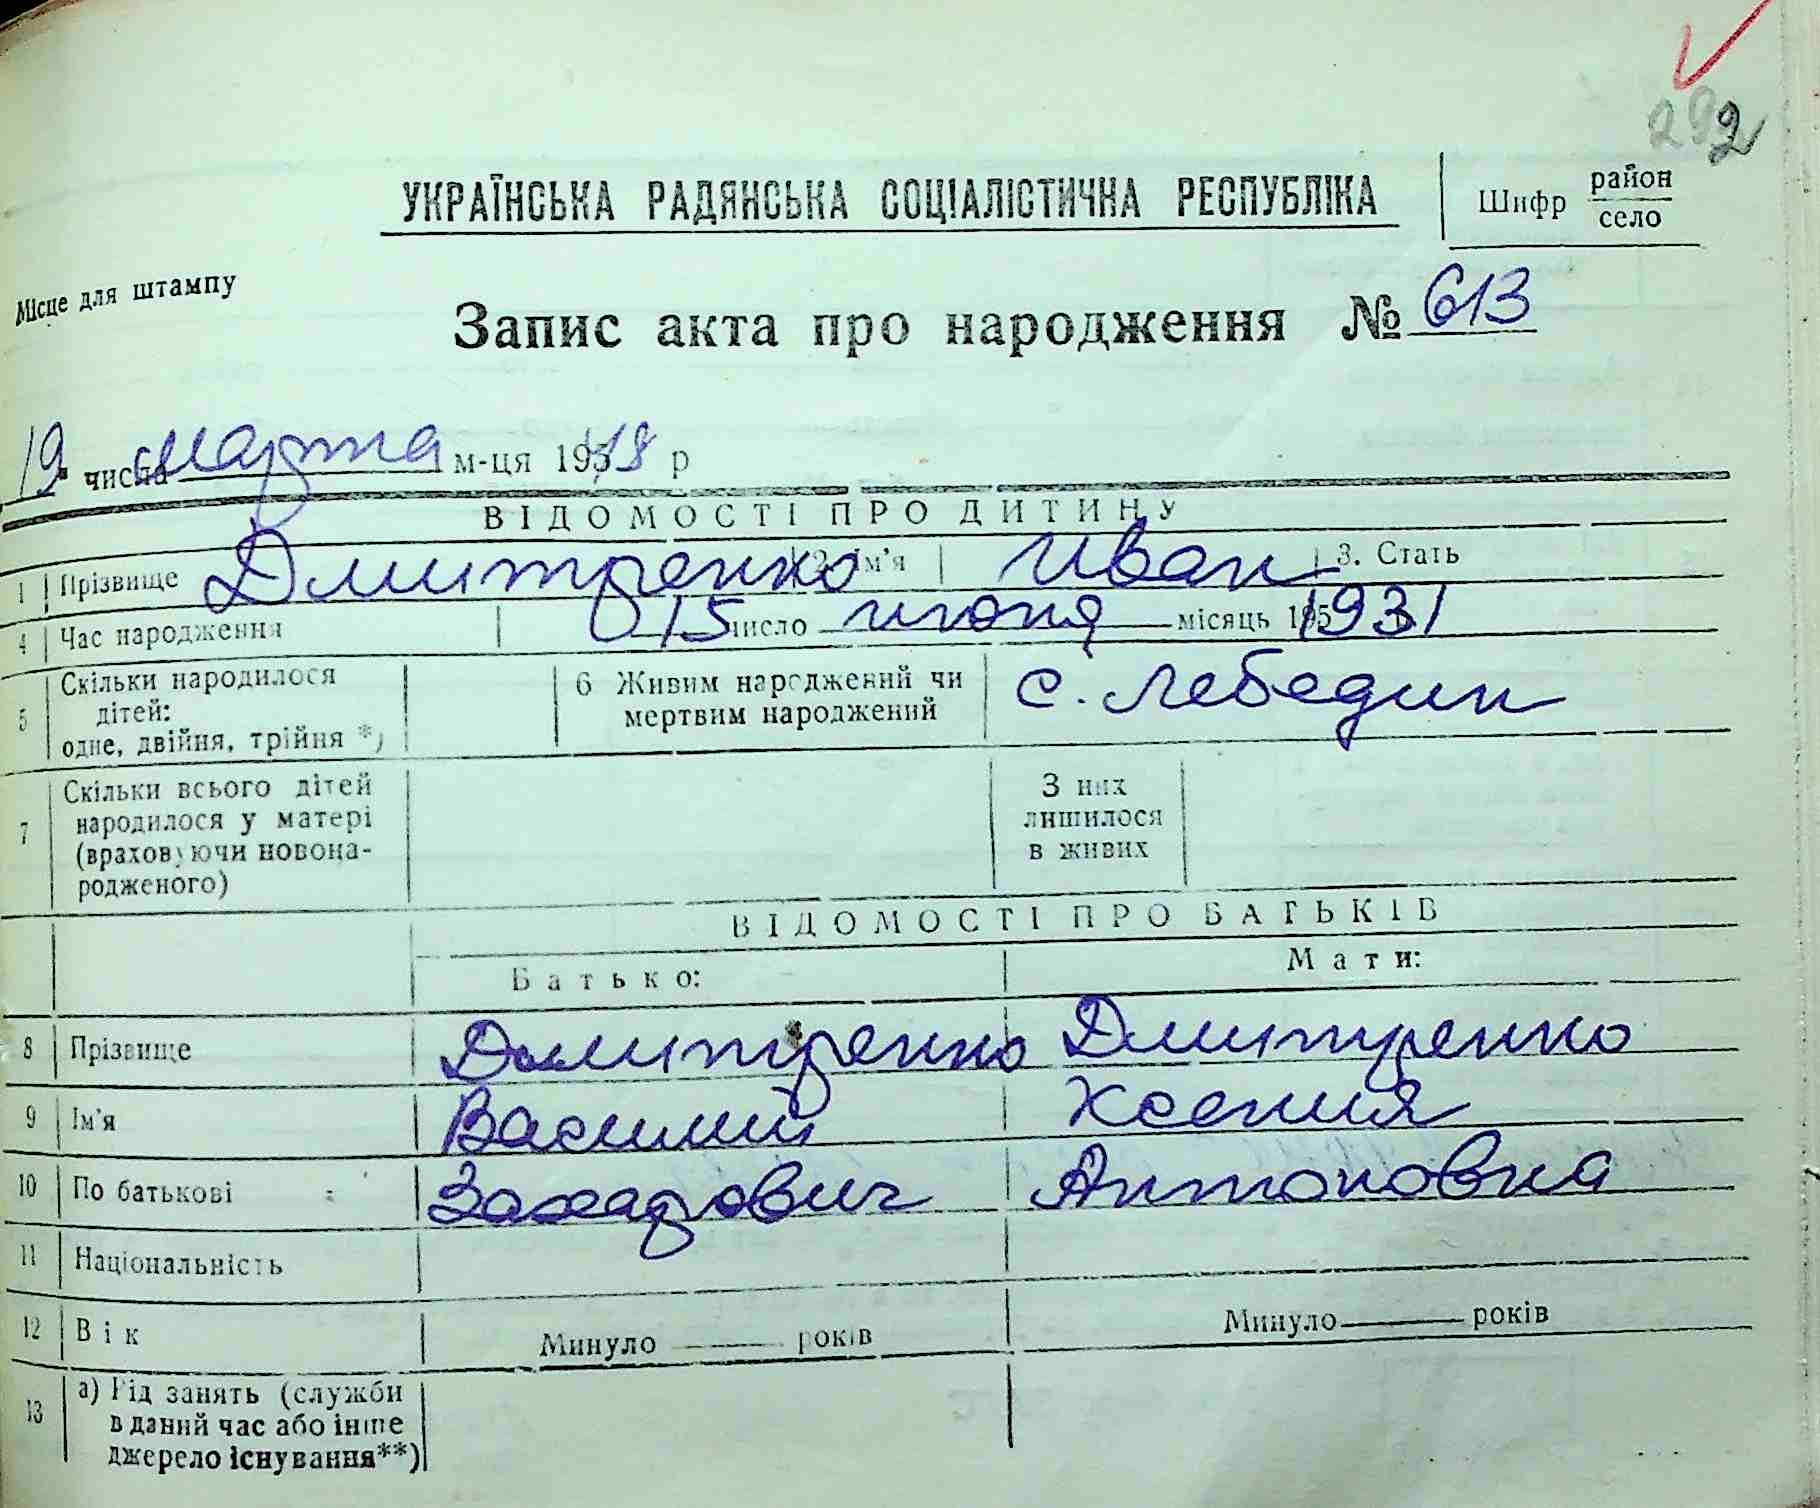 292
УКРАЇНСЬКА РАДЯНСЬКА СОЦІАЛІСТИЧНА РЕСПУБЛІКА
Шифр район село
Місце для штампу
Запис акта про народження № 613
19 числа марта м-ця 195 р
ВІДОМОСТІ ПРО ДИТИНУ
1 Прізвище Дмитренко 2. Ім'я Иван 3. Стать
4 Час народження 15 число июня місяць 195 1931
5 Скільки народилося дітей: одне, двійня, трійня *) 6 Живим народжений чи мертвим народжений с. Лебедин
7 Скільки всього дітей народилося у матері (враховуючи новона-родженого) З них лишилося в живих
ВІДОМОСТІ ПРО БАТЬКІВ
Батько: Мати:
8 Прізвище Дмитренко Дмитренко
9 Ім'я Василий Ксения
10 По батькові Захарович Антоновна
11 Національність
12 Вік Минуло років Минуло років
13 а) Рід занять (служби в даний час або інше джерело існування**)